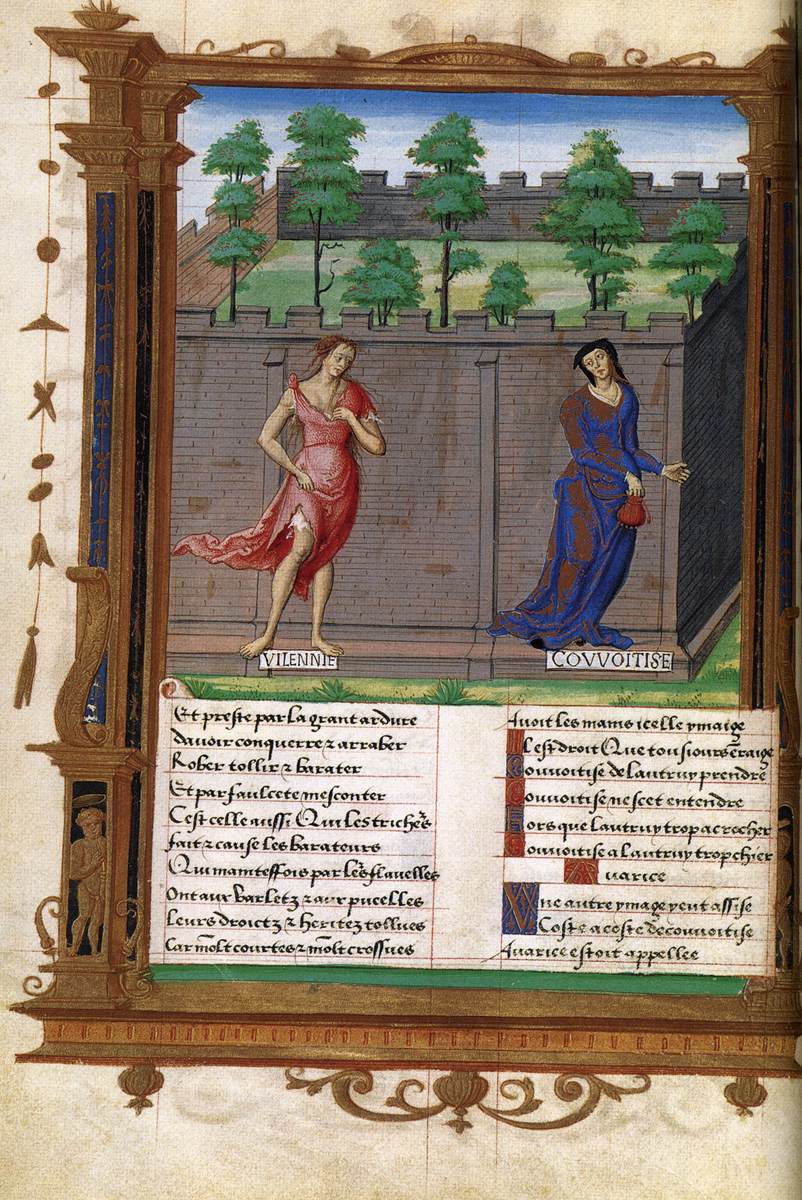 VILENNIE
COVVOITISE
Et preste par la grant ardure
davoir conquerre & arraber
Rober tollir & barater
Et par faulcete mesconter
Cest celle aussi Qui les trichers
fait & cause les barateurs
Qui mainteffois par lers flavelles
Ont aux varletz & aux pucelles
Leurs droictz & heritez tollues
Car molt courtes & molt crossues
Avoit les mains icelle ymaige
Il est droit Que tousiours eraige
Couvoitise de lautruy prendre
Couvoitise ne scet entendre
Fors que lautruy trop acrocher
Couvoitise a lautruy trop chier
Avarice
Vne autre ymage y eut assise
Coste a coste de couvoitise
Avarice estoit appellee